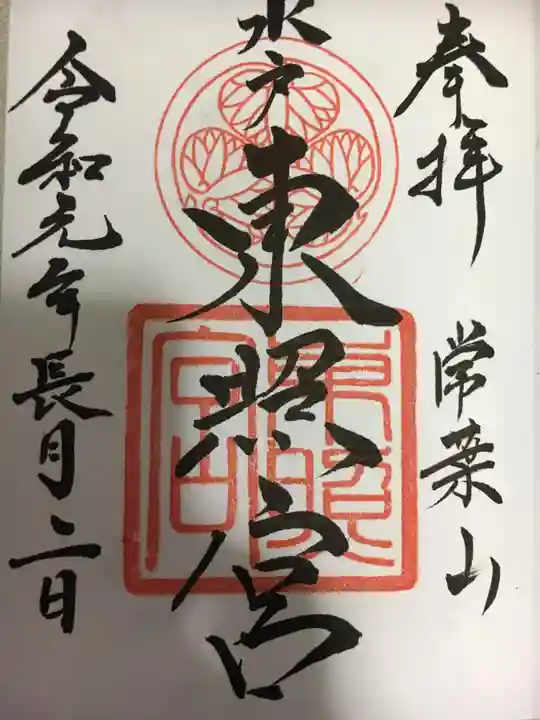 奉拝 常葉山
水戸東照宮
令和元年長月二日
東照宮